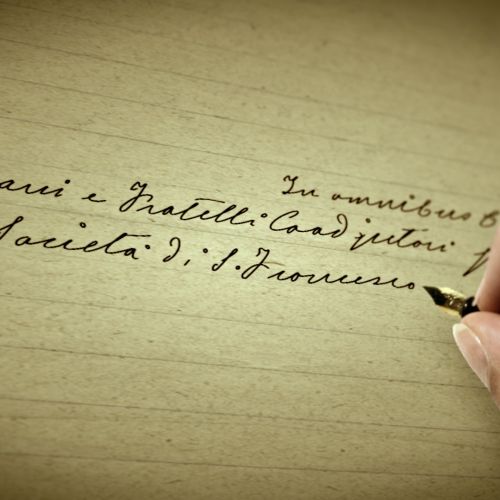 In omnibus
e Fratelli Coadjutori
Società di S. Francesco